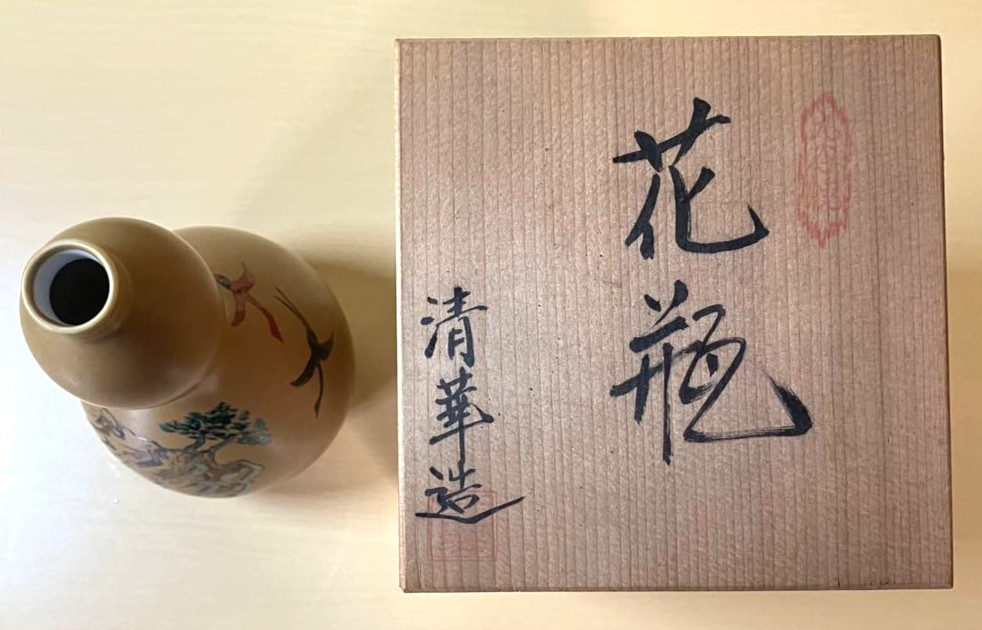 花瓶
清華造